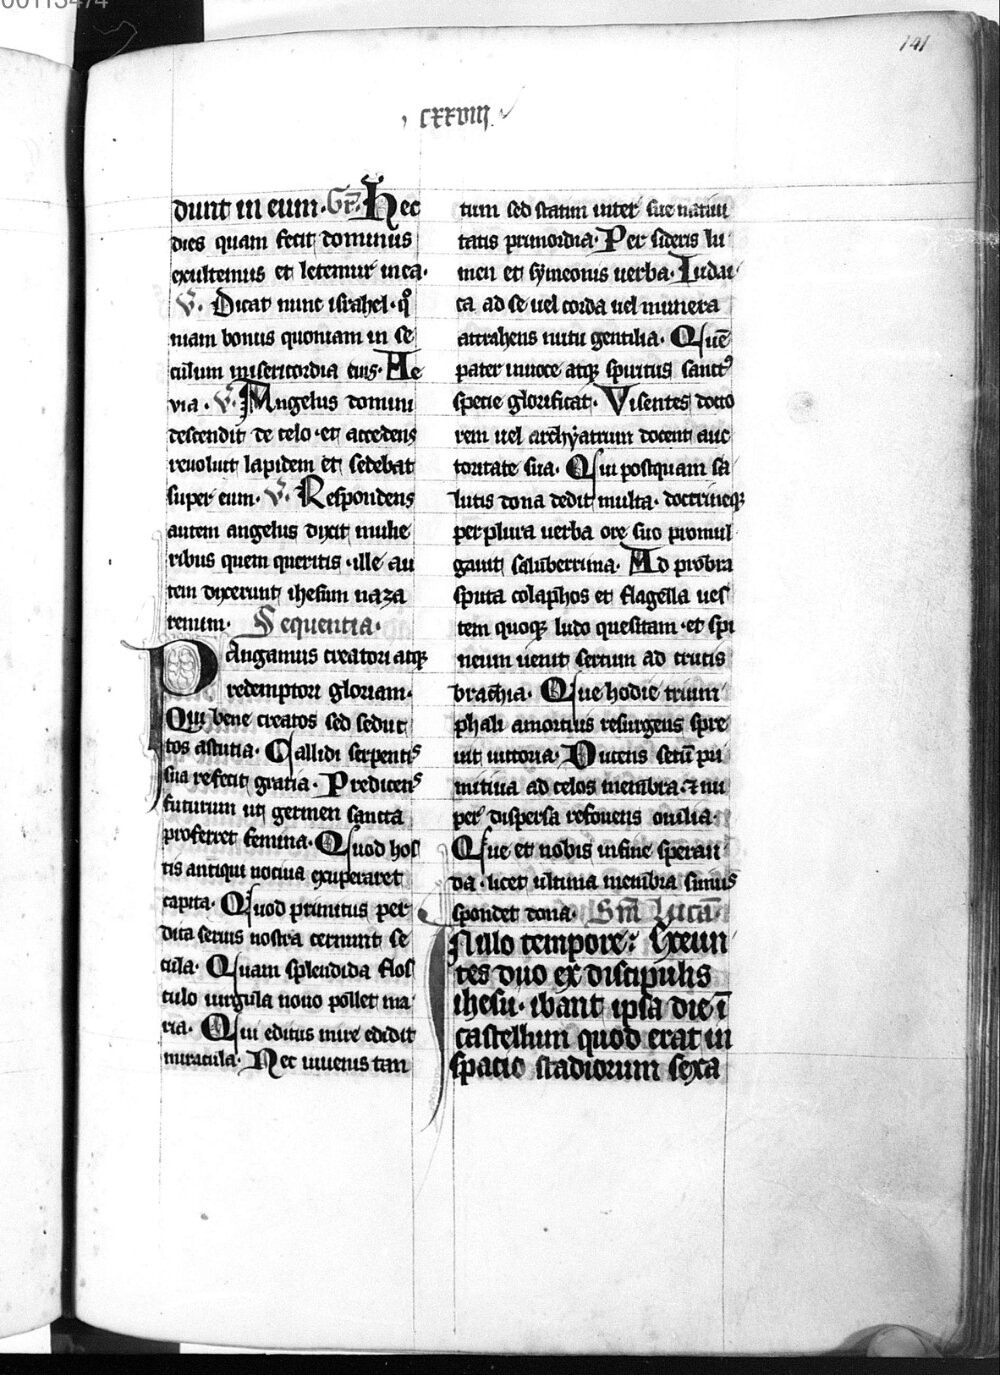 00113474
141
CXXVIII
dunt in eum. Gr̄. Hec
dies quam fecit dominus
exultemus et letemur in ea.
V. Dicat nunc israhel. qͦ
niam bonus quoniam in se
culum misericordia eius. Al̄e
via. V. Angelus domini
descendit de celo. et accedens
revoluit lapidem et sedebat
super eum. V. Respondens
autem angelus dixit mulie
ribus quem queritis. ille au
tem dixerunt ihesum naza
renum. Sequentia.
Pangamus creatori atqꝫ
redemptori gloriam.
Qui bene creatos sed seduc
tos astutia. Callidi serpentis
sua refecit gratia. Predicens
futurum ut germen sancta
proferret femina. Quod hos
tis antiqui nociua exuperaret
capita. Quod primitus per
dita seruis nostra cernunt se
cula. Quam splendida flos
culo uirgula nouo pollet ma
ria. Qui editus mire edidit
miracula. Nec iuuenis tan
tum sed statim inter sue natiui
tatis primordia. Per sideris lu
men et symeonis uerba. Iudai
ca ad se uel corda uel munera
attrahens nutu gentilia. Quē
pater in uoce atqꝫ spiritus sanctꝰ
specie glorificat. Visentes docto
rem uel archyatrum docent auc
toritate sua. Qui postquam sa
lutis dona dedit multa. doctrineqꝫ
per plura uerba ore suo promul
gauit saluberrima. Ad probra
sputa colaphos et flagella ues
tem quoqꝫ ludo quesitam. et spi
neum uenit sertum ad crucis
brachia. Que hodie trium
phali amortuis resurgens spre
uit uictoria. Ducens secū pri
mitiua ad celos membra. ⁊ nu
per dispersa refouens ouilia.
Que et nobis infine speran
da. licet ultima membra simus
spondet dona. Sm̄ Lucā.
In illo tempore: Exeun
tes duo ex discipulis
ihesu. ibant ipsa die ī
castellum quod erat in
spacio stadiorum sexa